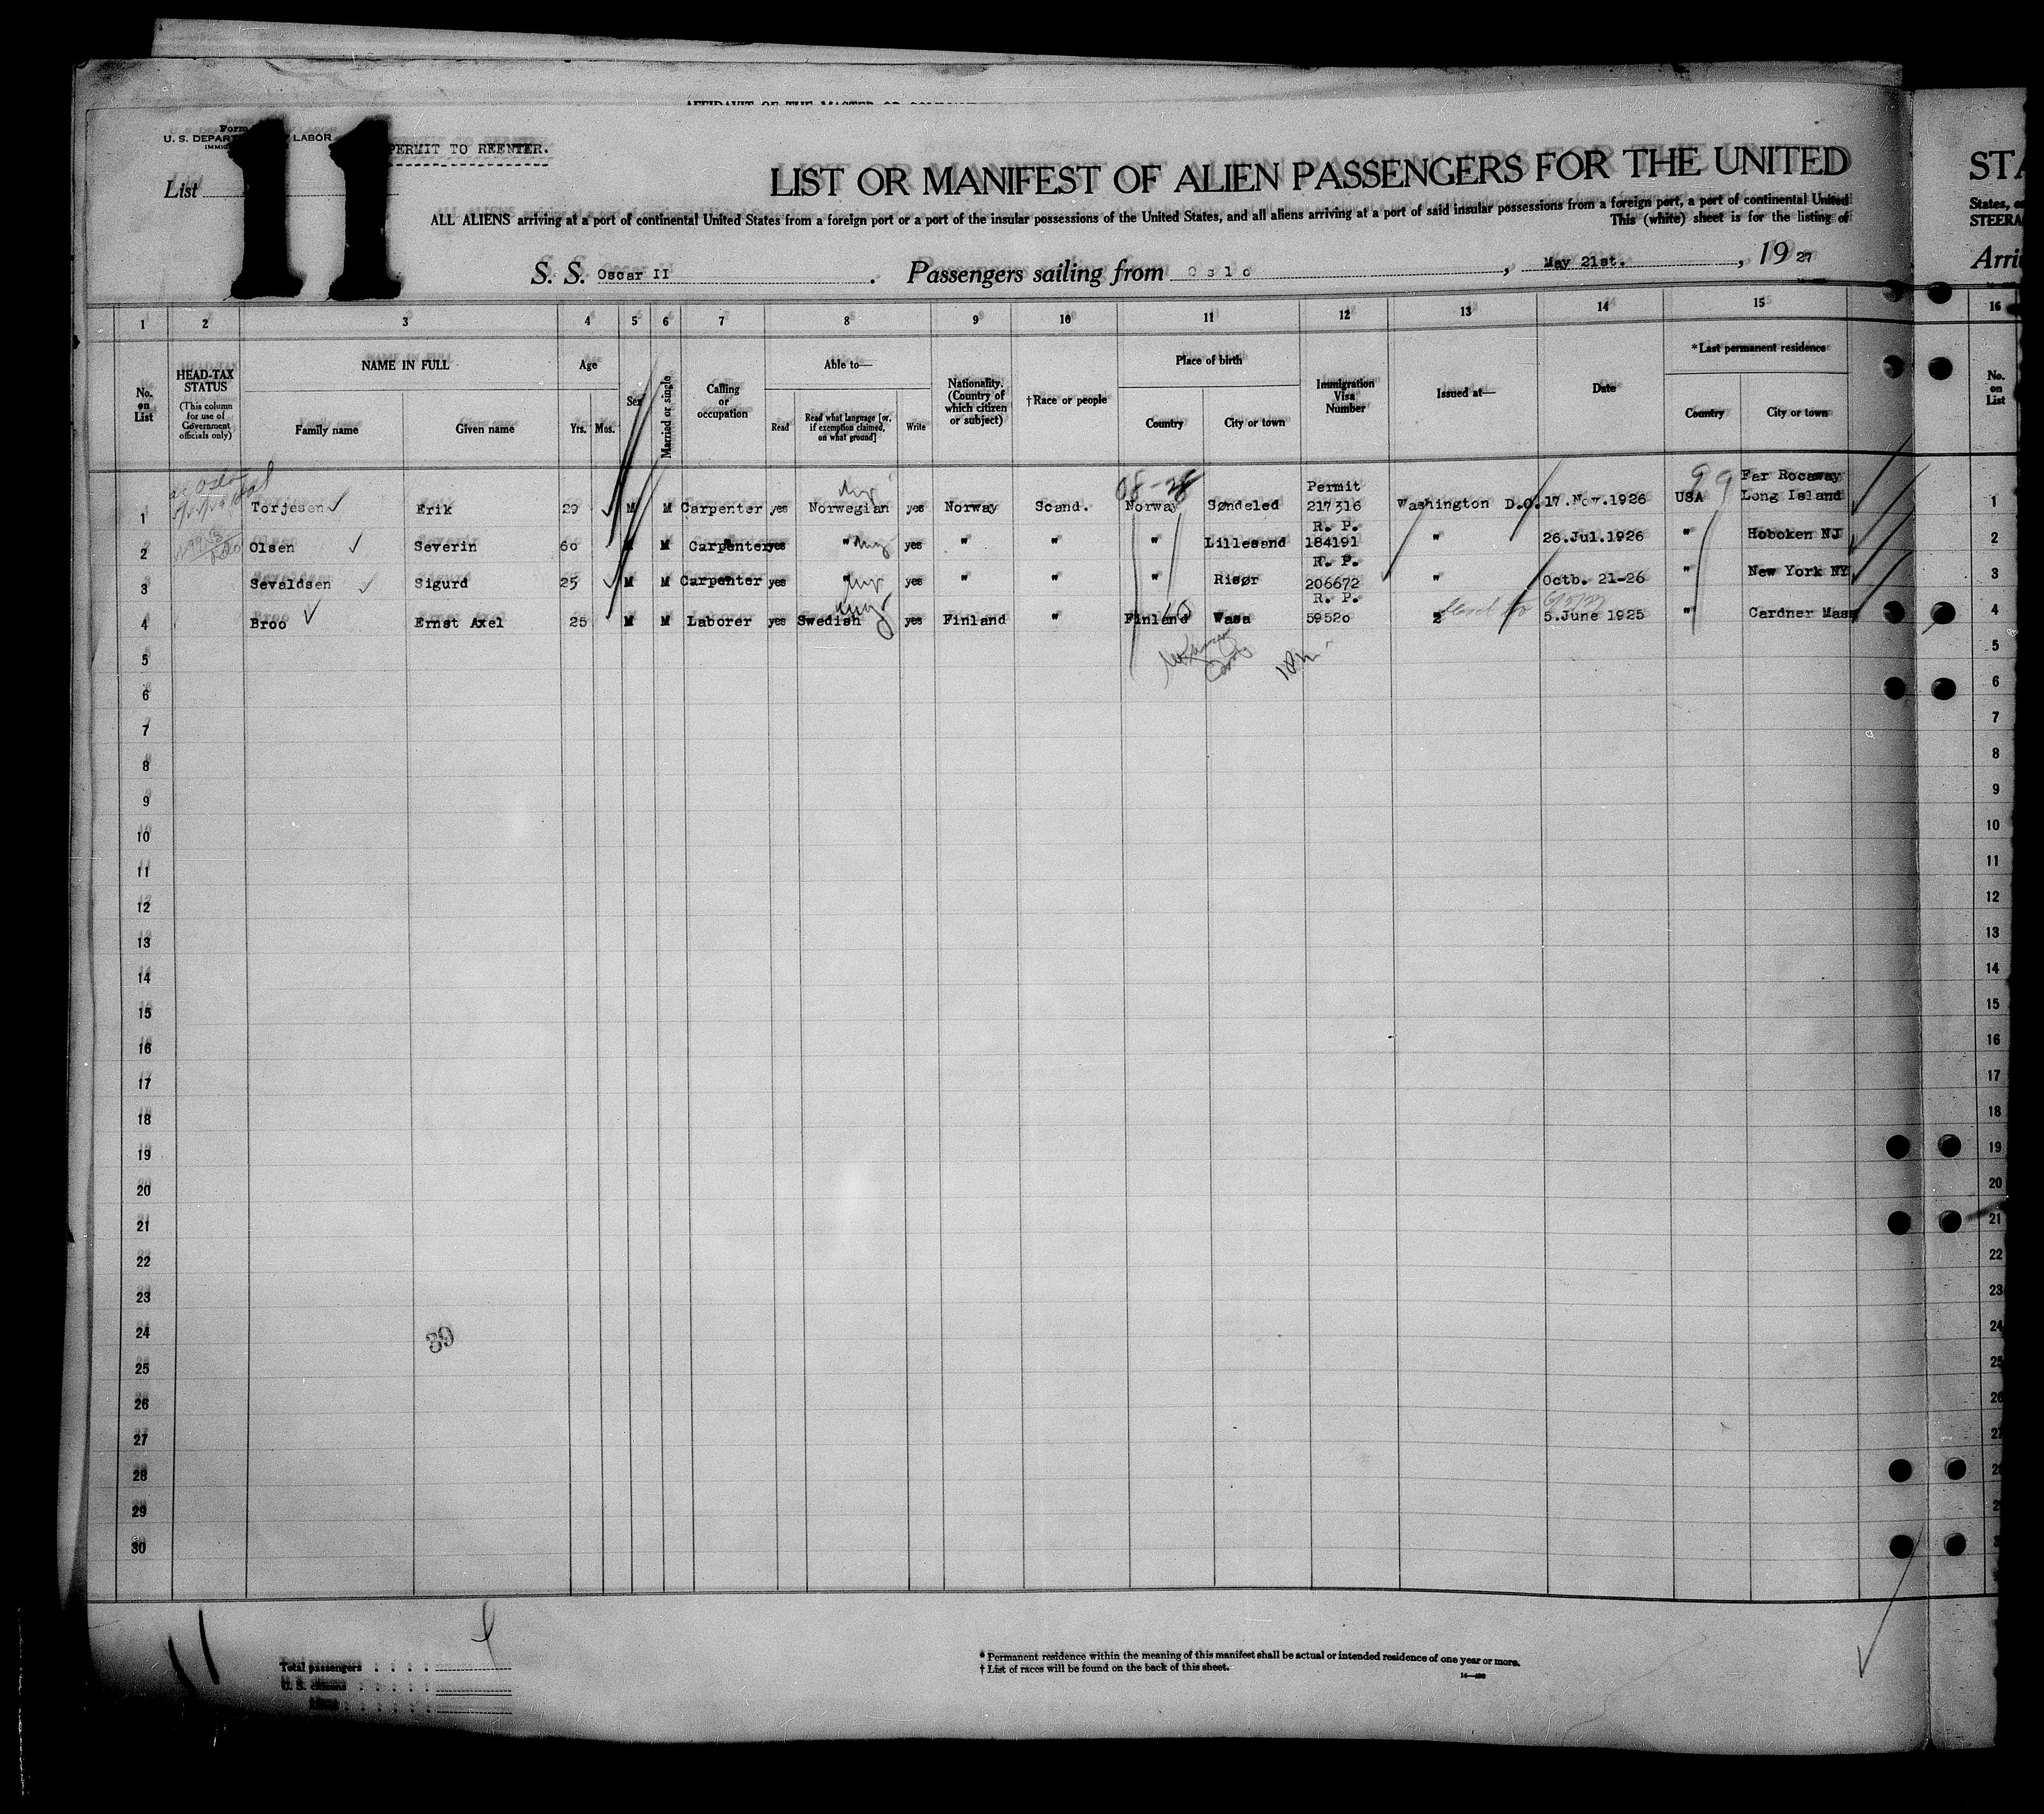 AFFIDAVIT OF THE MASTER OR
Form
U. S. DEPART LABOR
PERMIT TO REENTER.
List
11
LIST OR MANIFEST OF ALIEN PASSENGERS FOR THE UNITED
STA
ALL ALIENS arriving at a port of continental United States from a foreign port or a port of the insular possessions of the United States, and all aliens arriving at a port of said insular possessions from a foreign port, a port of continental United
States, or
This (white) sheet is for the listing of
STEERA
S. S. Oscar II . Passengers sailing from Oslo , May 21st. , 19 27
Arri
1 2 3 4 5 6 7 8 9 10 11 12 13 14 15 16
No. on List
HEAD-TAX STATUS
(This column for use of Government officials only)
NAME IN FULL
Family name Given name
Age
Yrs. Mos.
Sex
Married or single
Calling or occupation
Able to—
Read
Read what language [or, if exemption claimed, on what ground]
Write
Nationality. (Country of which citizen or subject)
†Race or people
Place of birth
Country City or town
Immigration Visa Number
Issued at—
Date
*Last permanent residence
Country City or town
No. on List
08-28
99
1 Torjesen Erik 29 M M Carpenter yes Norwegian yes Norway Scand. Norway Søndeled Permit 217316 Washington D.C. 17.Nov.1926 USA Far Rocaway Long Island 1
2 Olsen Severin 60 M M Carpenter yes " yes " " " Lillesand R. P. 184191 " 26.Jul.1926 " Hoboken NJ 2
3 Sevaldsen Sigurd 25 M M Carpenter yes " yes " " " Risør R. P. 206672 " Octb. 21-26 " New York NY 3
4 Broo Ernst Axel 25 M M Laborer yes Swedish yes Finland " Finland Wasa R. P. 59520 2 5.June 1925 " Gardner Mass 4
5 5
6 6
7 7
8 8
9 9
10 10
11 11
12 12
13 13
14 14
15 15
16 16
17 17
18 18
19 19
20 20
21 21
22 22
23 23
24 39 24
25 25
26 26
27 27
28
29
30
Total passengers
U. S. citizens
Aliens
* Permanent residence within the meaning of this manifest shall be actual or intended residence of one year or more.
† List of races will be found on the back of this sheet.